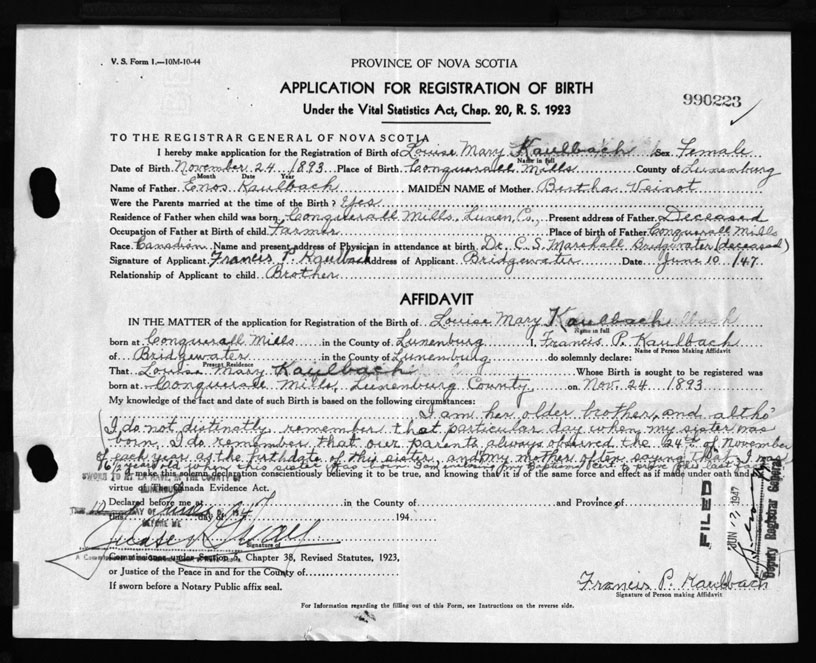 V. S. Form 1.—10M-10-44
PROVINCE OF NOVA SCOTIA
APPLICATION FOR REGISTRATION OF BIRTH
Under the Vital Statistics Act, Chap. 20, R. S. 1923
990223
TO THE REGISTRAR GENERAL OF NOVA SCOTIA
I hereby make application for the Registration of Birth of Louise Mary Kaulbach Sex Female
Name in full
Date of Birth November 24 1893 Place of Birth Conquerall Mills County of Lunenburg
Month Date Year
Name of Father Enos Kaulbach MAIDEN NAME of Mother Bertha Veinot
Were the Parents married at the time of the Birth? Yes
Residence of Father when child was born Conquerall Mills, Lunen. Co., Present address of Father Deceased
Occupation of Father at Birth of child Farmer Place of birth of Father Conquerall Mills
Race Canadian Name and present address of Physician in attendance at birth Dr. C. S. Marshall Bridgewater (deceased)
Signature of Applicant Francis P. Kaulbach Address of Applicant Bridgewater Date June 10 /47
Relationship of Applicant to child Brother
AFFIDAVIT
IN THE MATTER of the application for Registration of the Birth of Louise Mary Kaulbach
Name in full
born at Conquerall Mills in the County of Lunenburg Francis P. Kaulbach
Name of Person Making Affidavit
of Bridgewater in the County of Lunenburg do solemnly declare:
Present Residence
That Louise Mary Kaulbach Whose Birth is sought to be registered was
born at Conquerall Mills, Lunenburg County on Nov. 24 1893
My knowledge of the fact and date of such Birth is based on the following circumstances:
I am her older brother, and altho'
I do not distinctly remember that particular day when my sister was
born, I do remember that our parents always observed the 24th of November
of each year as the birthdate of this sister, and my mother often saying that I was
years old when this sister was born. I am enclosing my Baptismal Cert. to prove this last fact
I make this solemn declaration conscientiously believing it to be true, and knowing that it is of the same force and effect as if made under oath and
virtue of The Canada Evidence Act.
SWORN TO AT IN THE COUNTY OF
LUNENBURG
Declared before me in the County of and Province of
DAY OF June 1947
this day of 194
BEFORE ME
Signature of
Commissioner under Section 5, Chapter 38, Revised Statutes, 1923,
or Justice of the Peace in and for the County of
If sworn before a Notary Public affix seal.
FILED
JUN 12 1947
Deputy Registrar General
Francis P. Kaulbach
Signature of Person making Affidavit
For Information regarding the filling out of this Form, see Instructions on the reverse side.